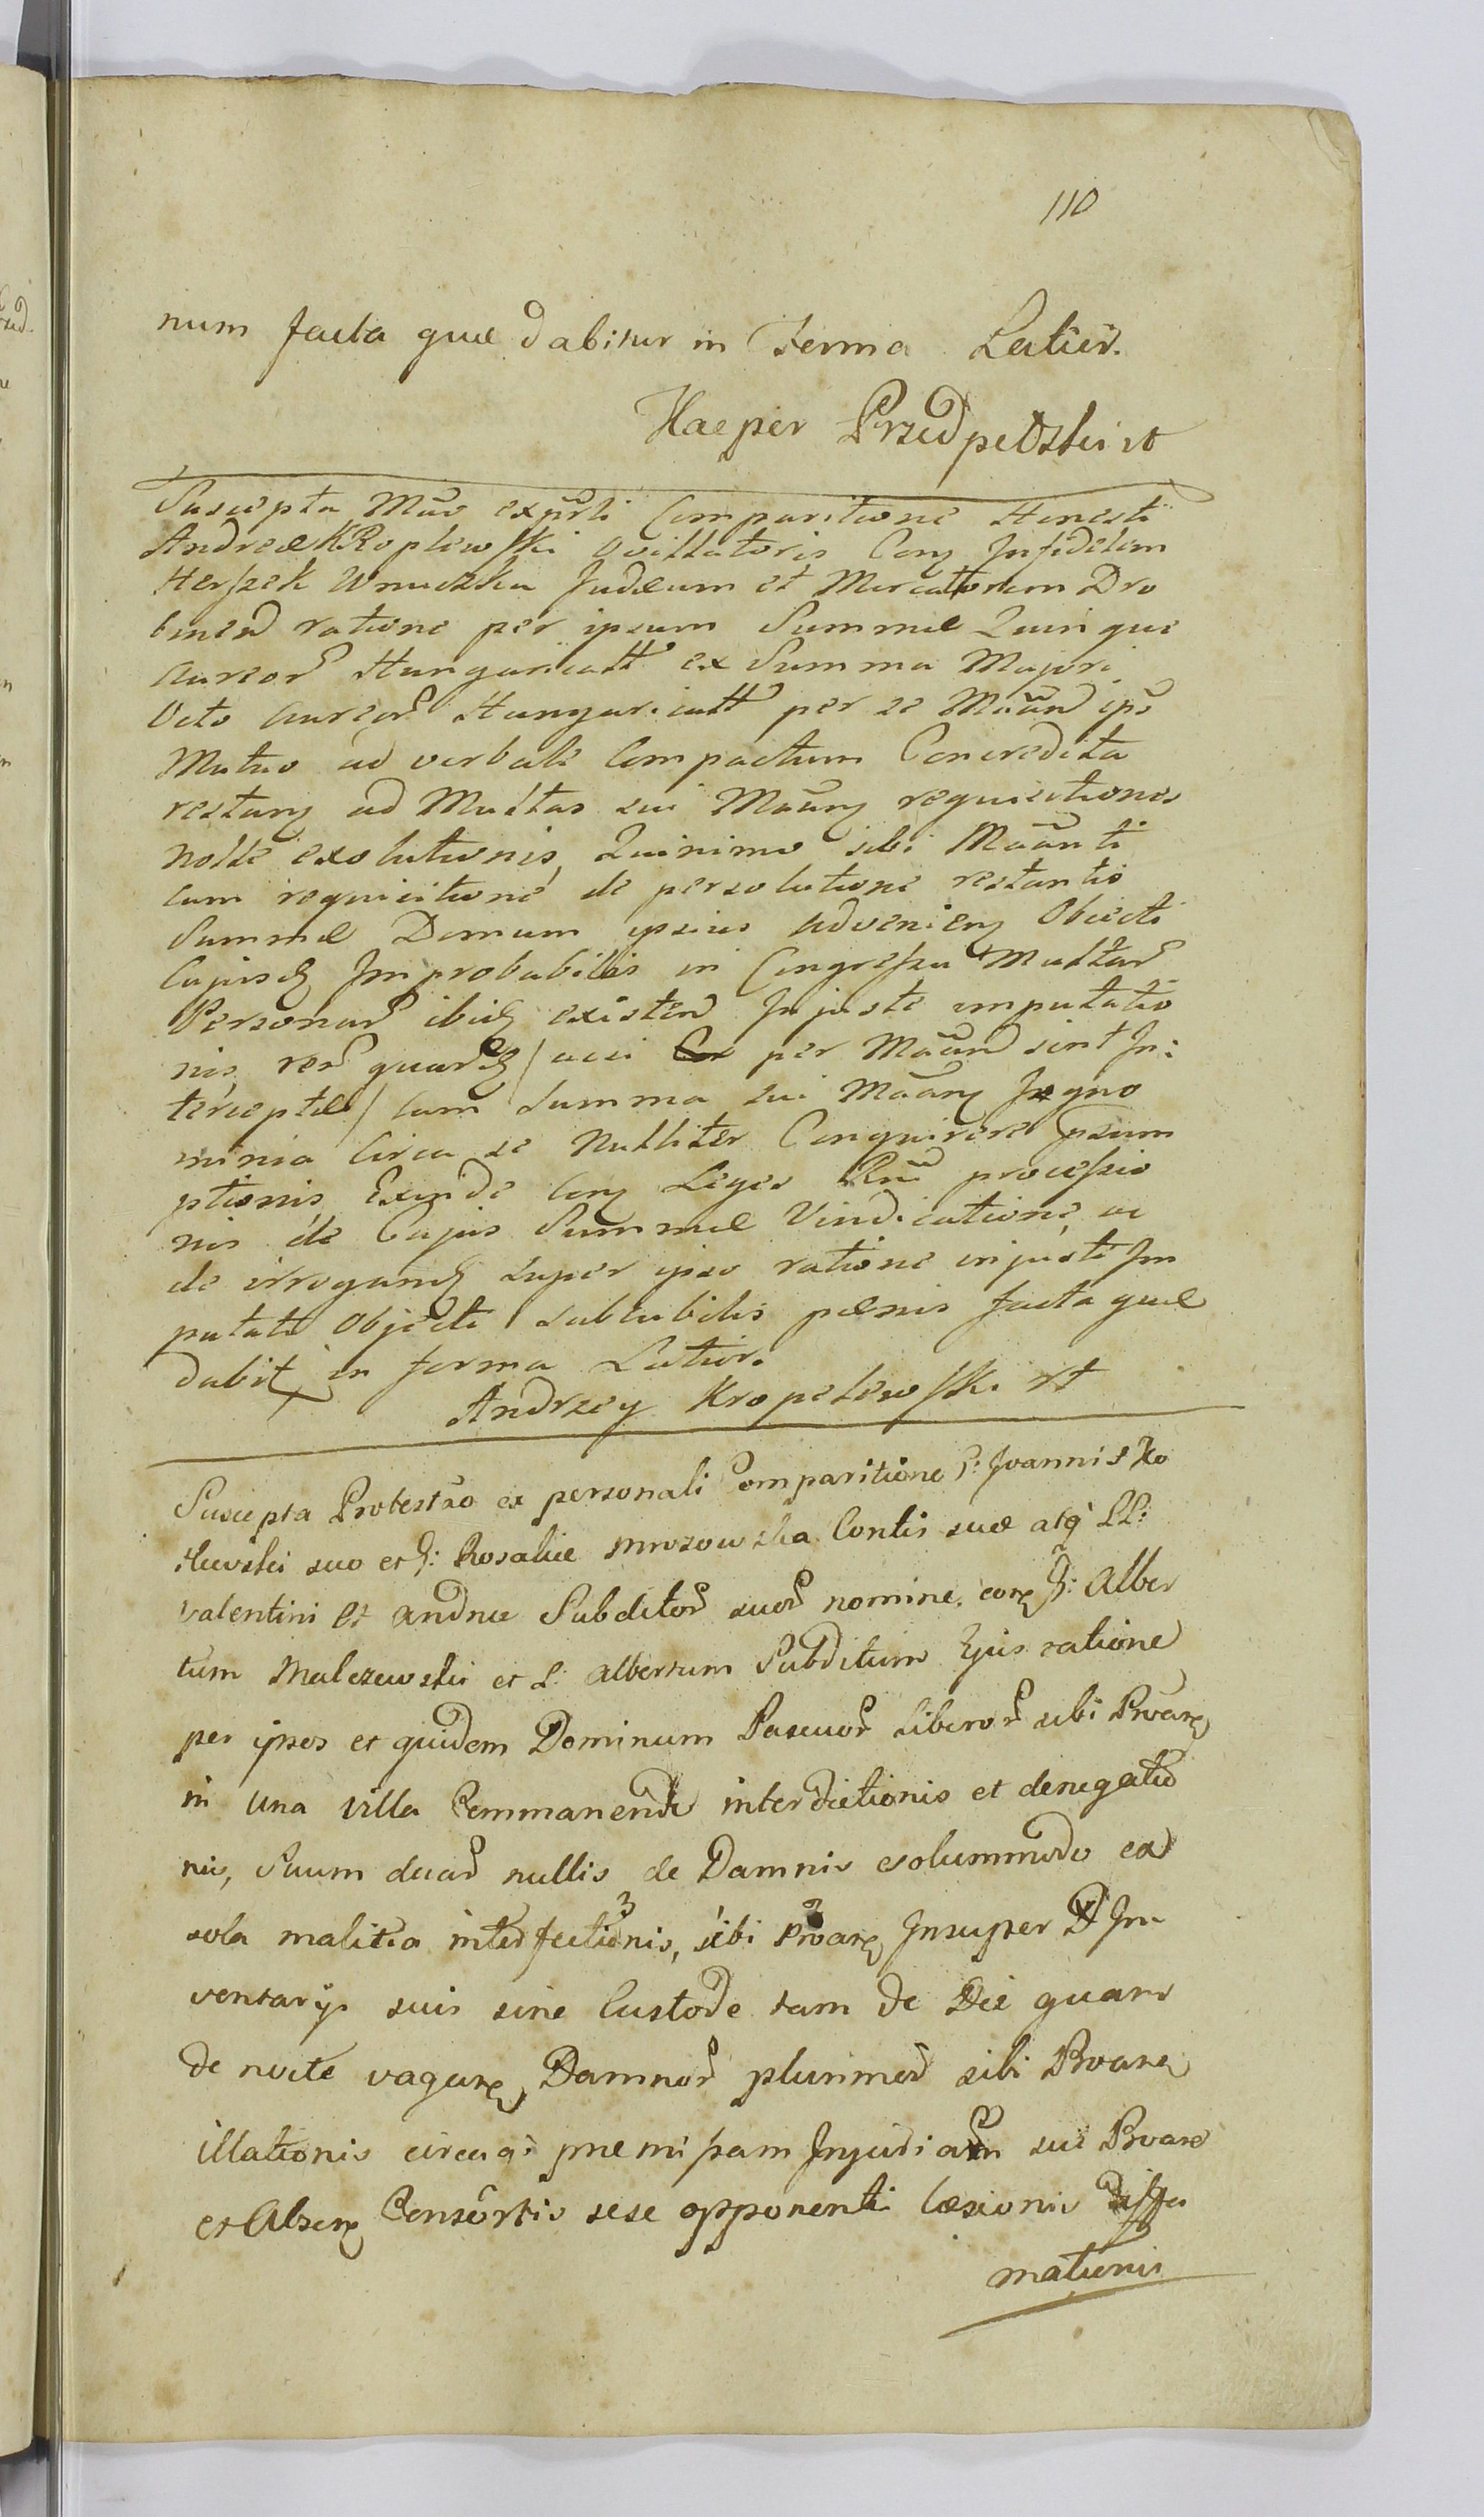 110
num facta quæ dabitur in Ferma Latiōr.
Kacper Przedpełski rt
Suscepta Mãõ ex prsli Comparitione Honesti
Andreæ KRoplewski Ovillatoris Conẽ Infidelem
Herszek Wnuczka Judæum et Mercatorem Dro
binen̄ ratione per ipsum Summæ Quinque
Aureor̄ Hungaricatt ex Summa Majori
Octo Aureor̄ Hungaricatt per se Mããn̄ ips̄
Mutuo ad verbale Compactum Concredita
restanẽ ad Multas sui Mããnẽ requisitiones
nolle exolutionis, Quinimo sibi Mããnti
cum requisitione de persolutione restantis
Summæ Domum ipsius advenienẽ Objecti
Cujusđ Improbabilis in Congressu Multar̄
Personar̄ ibidẽ existen̄ Injuste imputatio
nis, rer̄ quarđ / acsi per Mããn̄ sint In:
terceptæ / cum Summa sui Mããnẽ Igno
minia Circa se Nulliter Conquirere Præsum
ptionis Exinde Conẽ Leges Rñi processio
nis de Cujus Summæ Vindicatione, ac
de irrogandẽ super ipso ratione injusti Im
putati Objecti Luccubilis pænis facta quæ
dabit in forma Latior.
Andrzey Kropelewski rt
Suscepta Protestão ex personali Comparitione G: Joannis Ko
złowski suo et G: Rosaliæ Mrozowska Contis suæ atq̀ LL:
Valentini et Andreæ Subditor̄ suor̄ nomine, conẽ G: Alber
tum Malczewski et L: Albertum Subditum Ejus ratione
per ipsos et quidem Dominum Pascuor̄ Liberor̄ sibi Prõanẽ
in Una Villa Commanendi interdictionis et denegatio
nis, Suum duar̄ nullis de Damnis esolummodo ex
sola malitia interfectionis, sibi Prõanẽ Insuper D In
ventarys suis sine Custode tam de Die quam
de nocte vaganẽ, Damnor̄ plurimor̄ sibi Prõanẽ
illationis circaq̀ præmissam Injuriam sui Prõanẽ
et Absenẽ Consortis sese opponenti læsionis Diffa
mationis